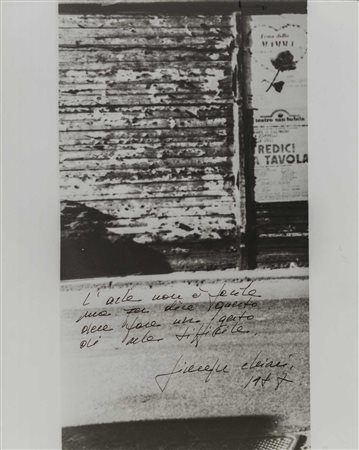 Festa della
MAMMA
teatro san babila
REDICI
A TAVOLA
L'arte non è facile
ma chi dice questo
deve fare un gesto
di arte difficile.
Giuseppe Chiari,
1987